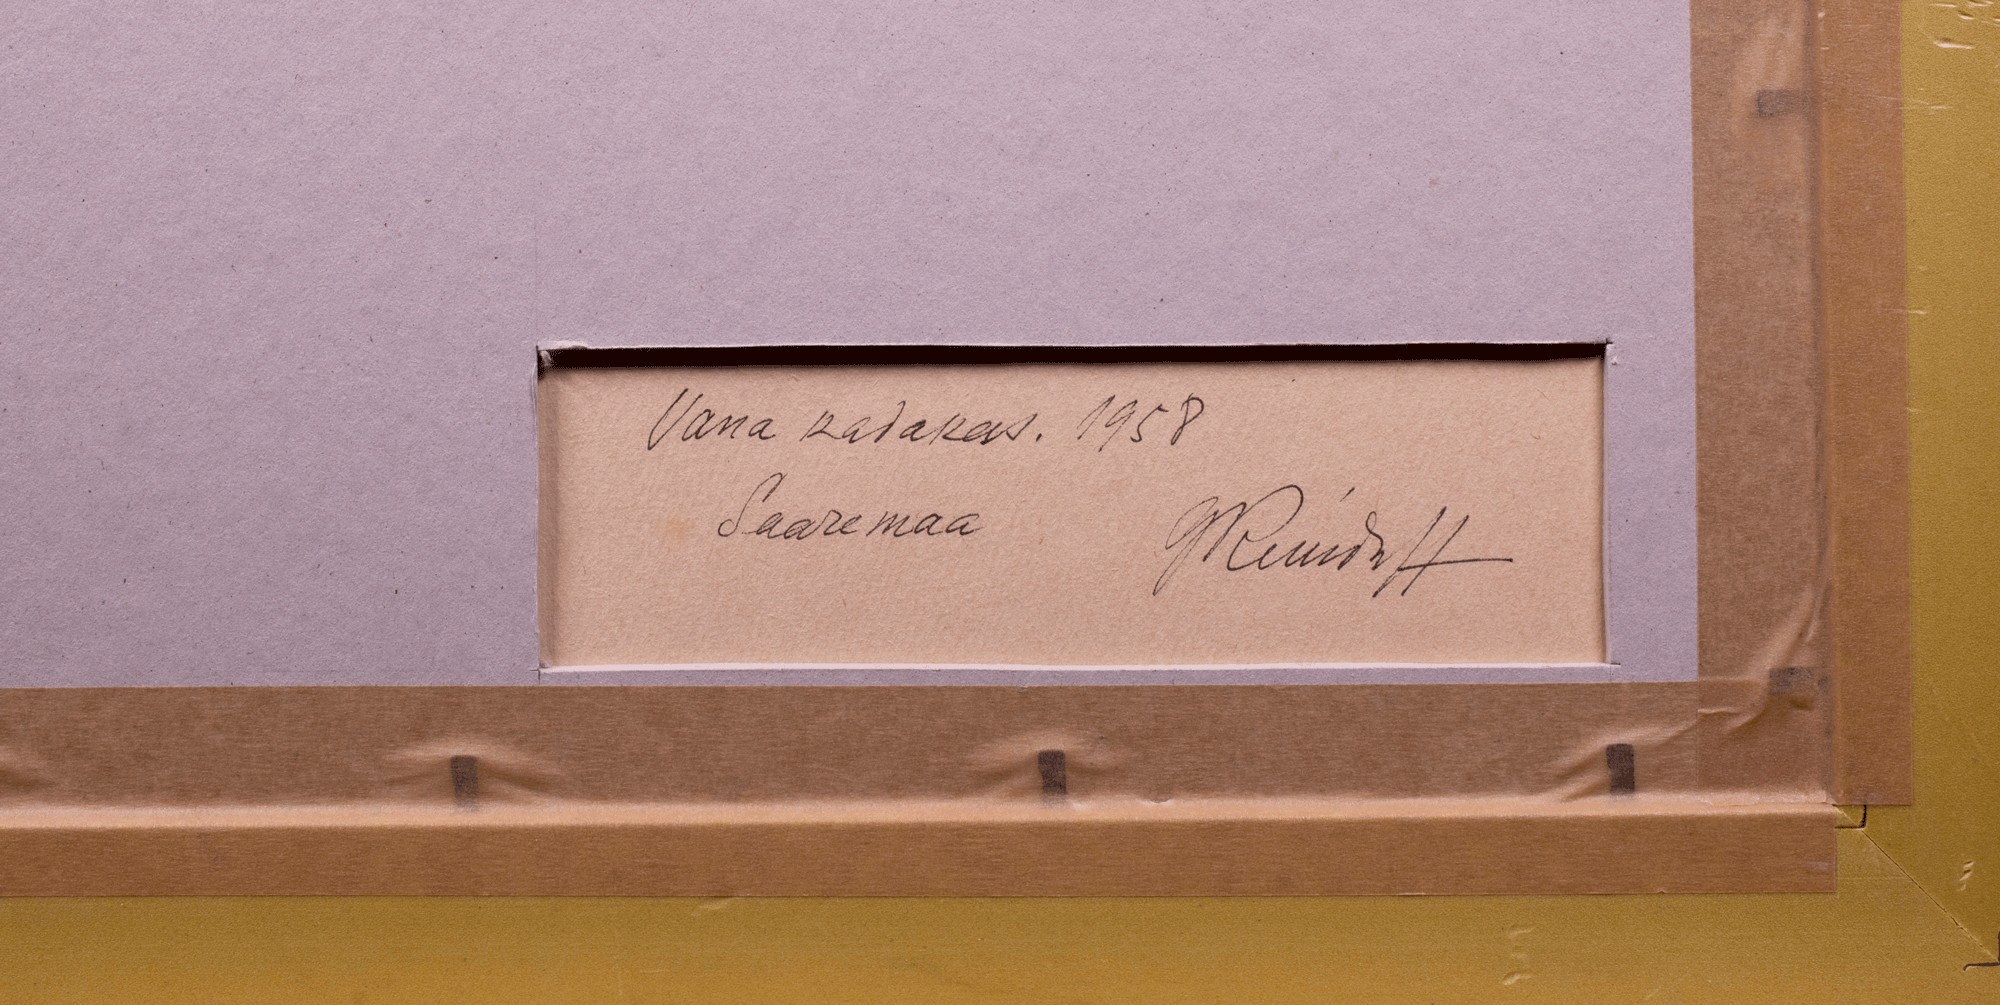 Vana kadakas. 1958
Saaremaa
GReindorff